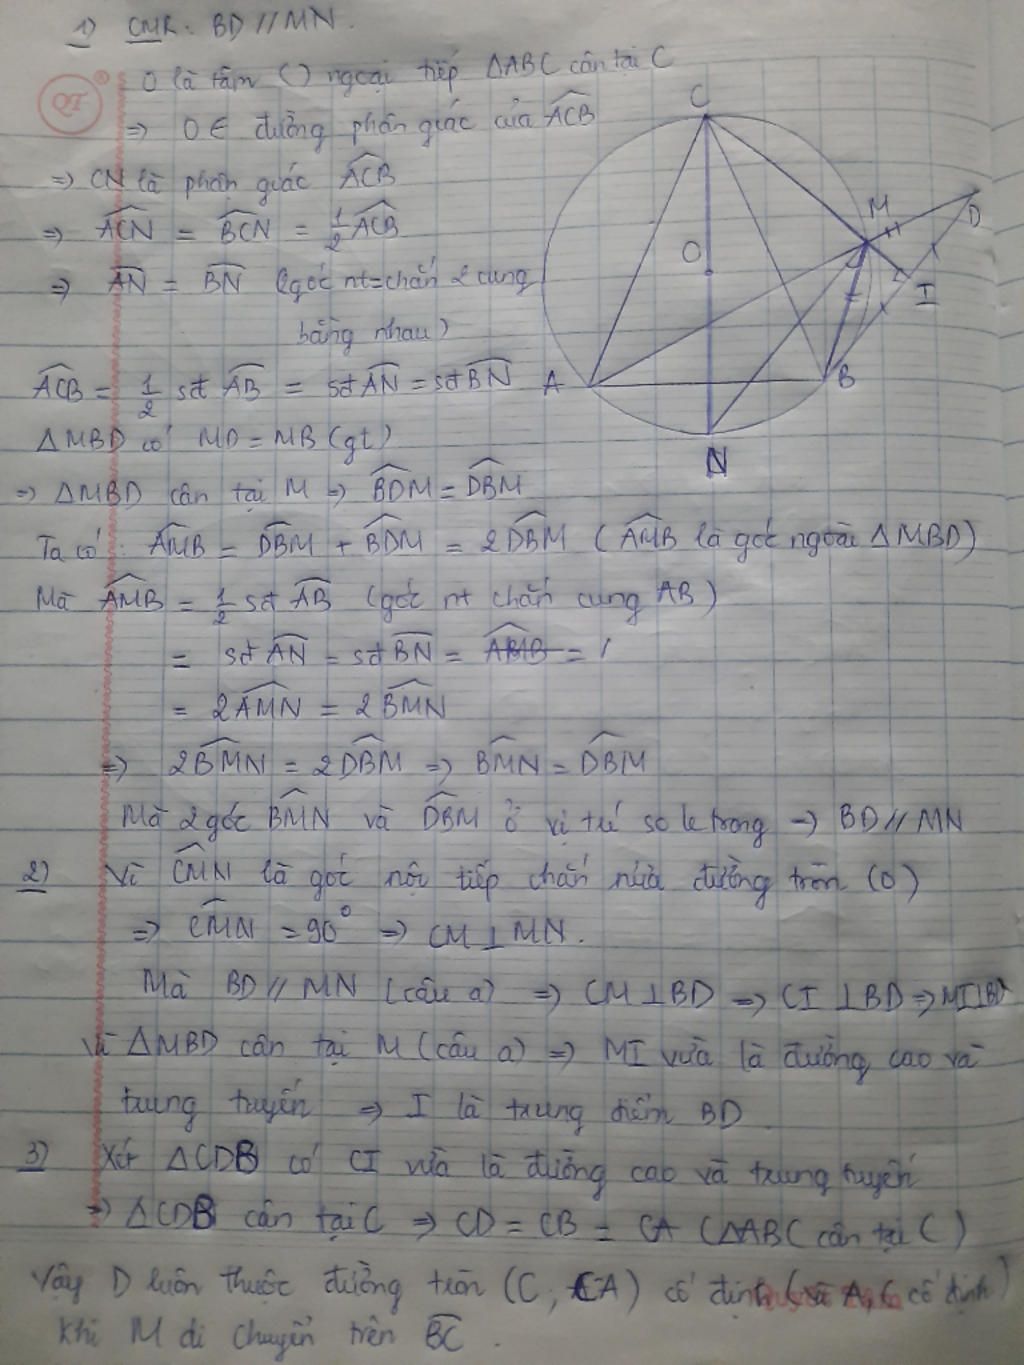 1) CMR: BD // MN.
O là tâm () ngoại tiếp ΔABC cân tại C
⇒ O ∈ đường phân giác của ∠ACB
⇒ CN là phân giác ∠ACB
⇒ ∠ACN = ∠BCN = 1/2 ∠ACB
⇒ AN = BN (góc nt = chắn 2 cung
bằng nhau)
∠ACB = 1/2 sđ AB = sđ AN = sđ BN
ΔMBD có MD = MB (gt)
⇒ ΔMBD cân tại M ⇒ ∠BDM = ∠DBM
Ta có: ∠AMB = ∠DBM + ∠BDM = 2∠DBM (∠AMB là góc ngoài ΔMBD)
Mà ∠AMB = 1/2 sđ AB (góc nt chắn cung AB)
= sđ AN = sđ BN =
= 2∠AMN = 2∠BMN
⇒ 2∠BMN = 2∠DBM ⇒ ∠BMN = ∠DBM
Mà 2 góc ∠BMN và ∠DBM ở vị trí so le trong → BD // MN
2) Vì ∠CMN là góc nội tiếp chắn nửa đường tròn (O)
⇒ ∠CMN = 90° ⇒ CM ⊥ MN.
Mà BD // MN (câu a) ⇒ CM ⊥ BD ⇒ CI ⊥ BD ⇒ MI ⊥ BD
Vì ΔMBD cân tại M (câu a) ⇒ MI vừa là đường cao và
trung tuyến ⇒ I là trung điểm BD
3) Xét ΔCDB có CI vừa là đường cao và trung tuyến
⇒ ΔCDB cân tại C ⇒ CD = CB = CA (ΔABC cân tại C)
Vậy D luôn thuộc đường tròn (C; CA) cố định (vì A, C cố định)
khi M di chuyển trên BC.
C
M
D
O
I
A
B
N